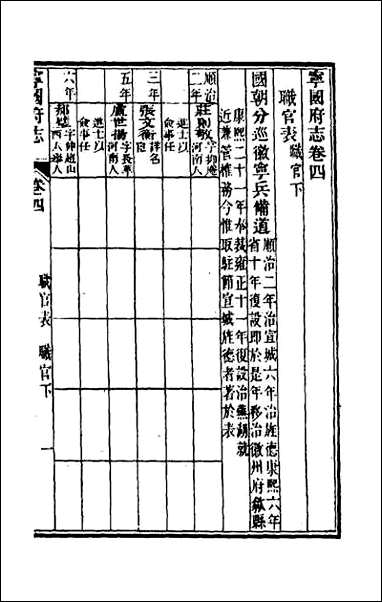 寧國府志卷四
職官表 職官下
國朝分巡徽寧兵備道
順治二年治宣城六年治旌德康熙六年
省十年復設即於是年移治徽州府歙縣
康熙二十一年奉裁雍正十一年復設治蕪湖就
近兼管榷務今惟取駐節宣城旌德者著於表
順治二年
莊則敬 字抑庵
河南人
進士以
僉事任
三年
張文衡 詳名宦
五年
盧世揚 字長
河南人
進士以
僉事任
六年
字仲趙
山西人舉人
寧國府志
卷四
職官表 職官下
一